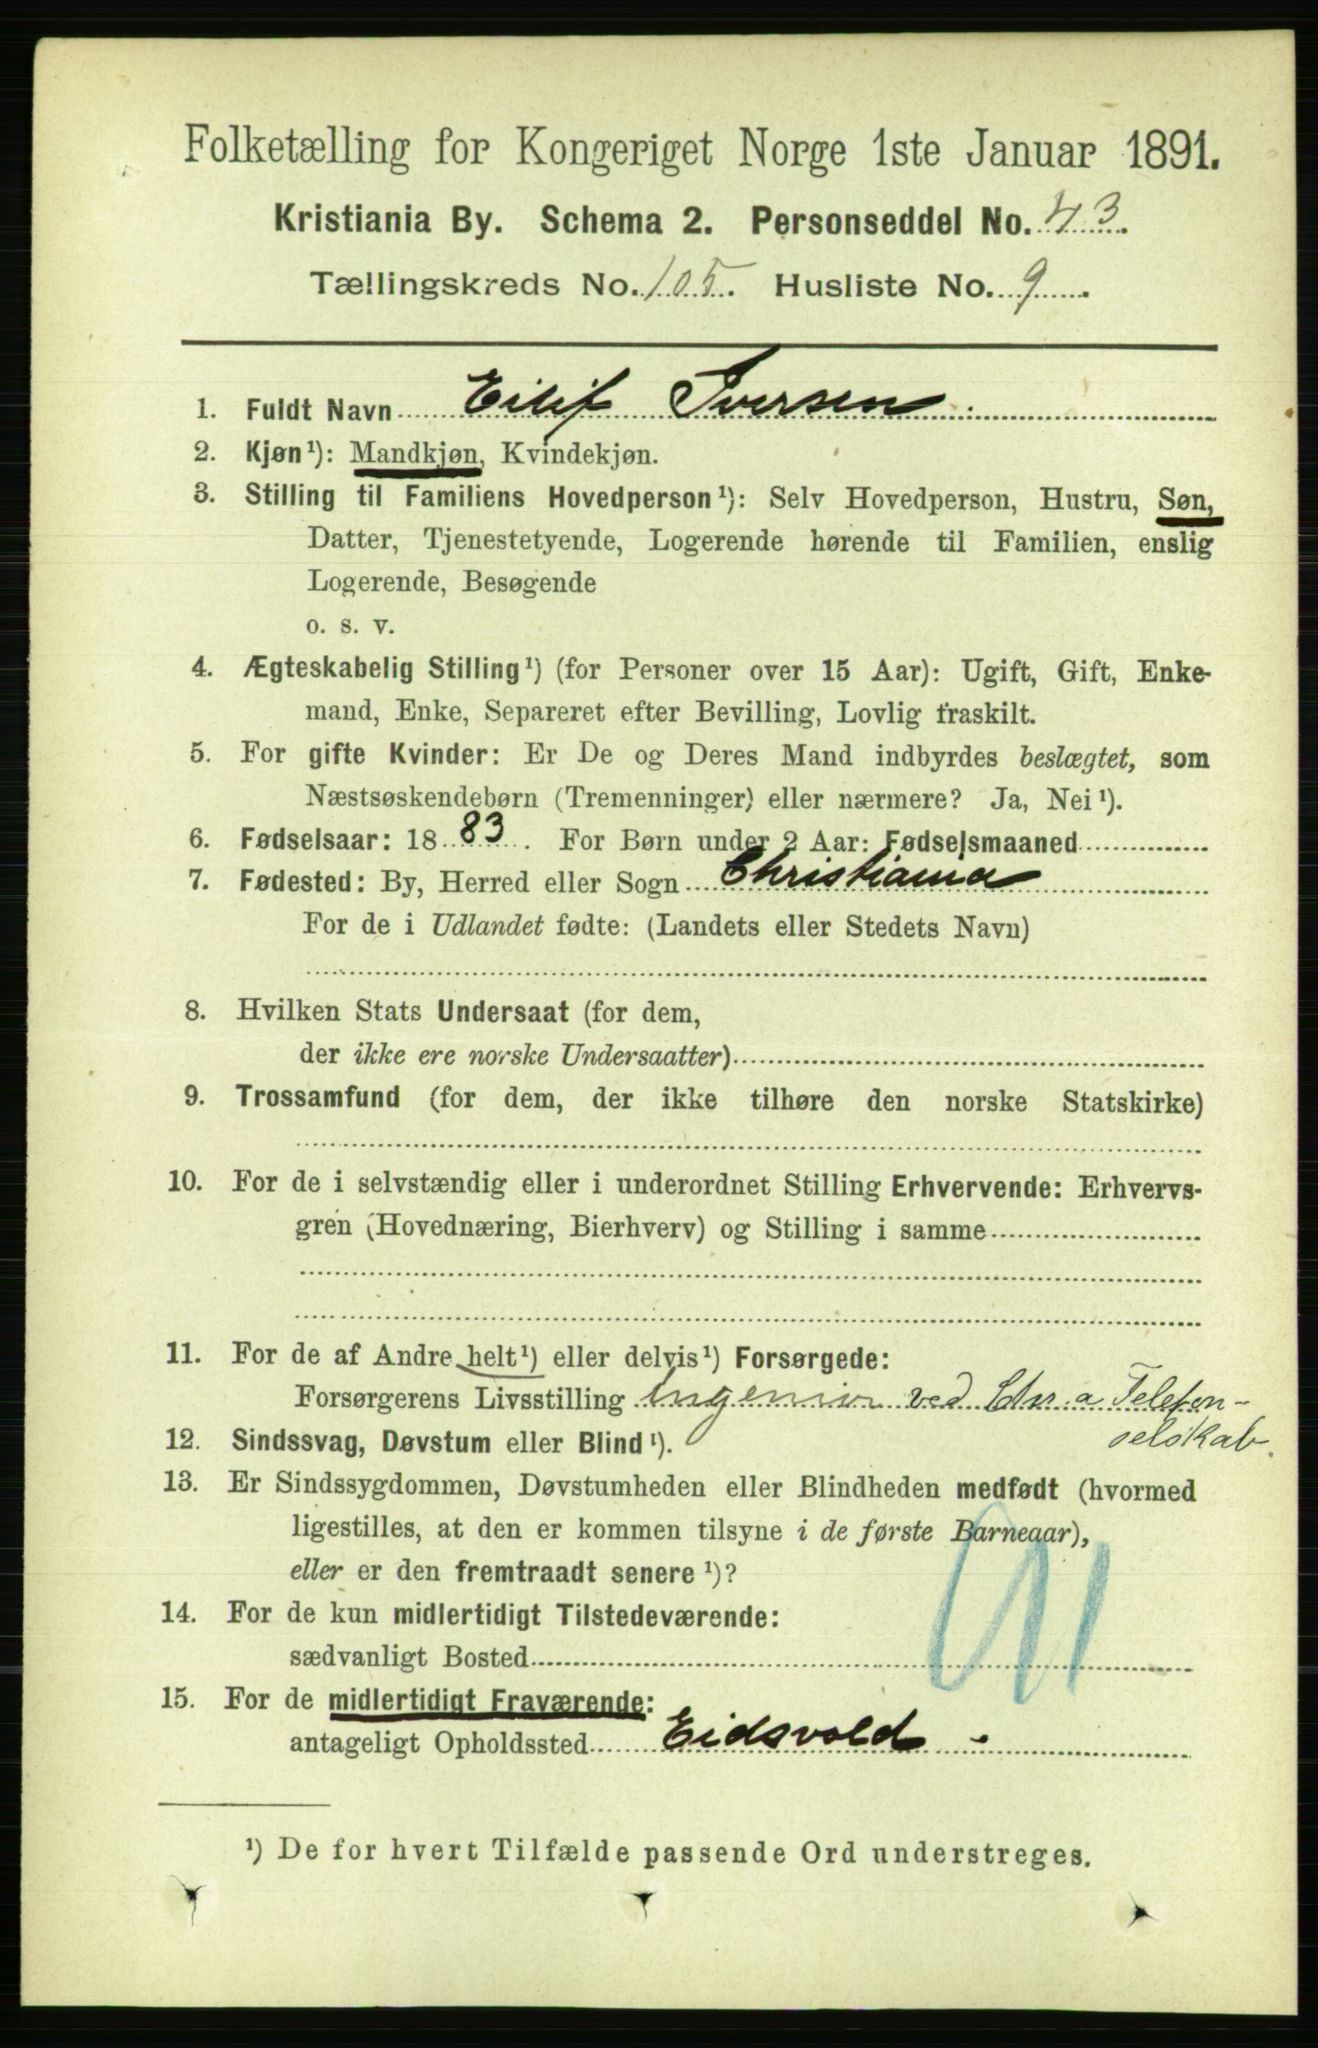 Folketælling for Kongeriget Norge 1ste Januar 1891.
Kristiania By. Schema 2. Personseddel No. 43.
Tællingskreds No. 105. Husliste No. 9.
1. Fuldt Navn Eilif Iversen.
2. Kjøn¹): Mandkjøn, Kvindekjøn.
3. Stilling til Familiens Hovedperson¹): Selv Hovedperson, Hustru, Søn,
Datter, Tjenestetyende, Logerende hørende til Familien, enslig
Logerende, Besøgende
o. s. v.
4. Ægteskabelig Stilling¹) (for Personer over 15 Aar): Ugift, Gift, Enke-
mand, Enke, Separeret efter Bevilling, Lovlig fraskilt.
5. For gifte Kvinder: Er De og Deres Mand indbyrdes beslægtet, som
Næstsøskendebørn (Tremenninger) eller nærmere? Ja, Nei¹).
6. Fødselsaar: 1883. For Børn under 2 Aar: Fødselsmaaned
7. Fødested: By, Herred eller Sogn Christiania
For de i Udlandet fødte: (Landets eller Stedets Navn)
8. Hvilken Stats Undersaat (for dem,
der ikke ere norske Undersaatter)
9. Trossamfund (for dem, der ikke tilhøre den norske Statskirke)
10. For de i selvstændig eller i underordnet Stilling Erhvervende: Erhvervs-
gren (Hovednæring, Bierhverv) og Stilling i samme
11. For de af Andre helt¹) eller delvis¹) Forsørgede:
Forsørgerens Livsstilling Ingeniør ved Chr.a Telefon-
selskab.
12. Sindssvag, Døvstum eller Blind¹).
13. Er Sindssygdommen, Døvstumheden eller Blindheden medfødt (hvormed
ligestilles, at den er kommen tilsyne i de første Barneaar),
eller er den fremtraadt senere¹)?
14. For de kun midlertidigt Tilstedeværende:
sædvanligt Bosted
15. For de midlertidigt Fraværende:
antageligt Opholdssted Eidsvold.
¹) De for hvert Tilfælde passende Ord understreges.